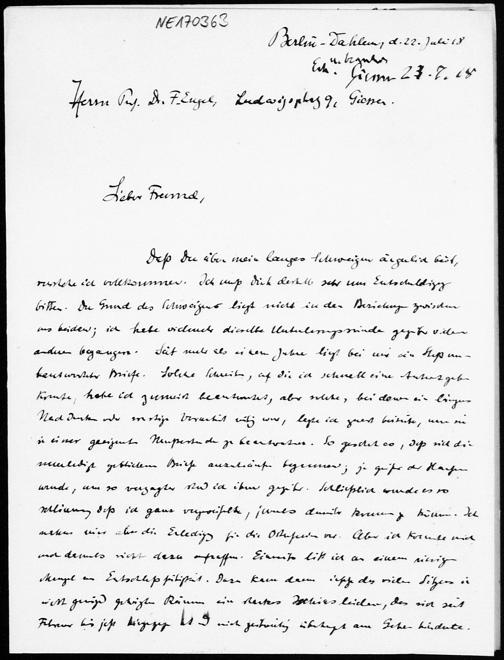 NE170363
Berlin-Dahlem, d. 22. Juli 18
Giessen 23.7.18
Herrn Prof. Dr. F. Engel, Ludwigsplatz 9, Giessen.
Lieber Freund,
Daß Du über mein langes Schweigen ärgerlich bist,
verstehe ich vollkommen. Ich muß Dich deshalb sehr um Entschuldigung
bitten. Der Grund des Schweigens liegt nicht in den Beziehungen zwischen
uns beiden; ich habe vielmehr dieselbe Unterlassungssünde gegenüber vielen
anderen begangen. Seit mehr als einem Jahre liegt bei mir ein Stoß un-
beantworteter Briefe. Solche Schreiben, auf die ich schnell eine Antwort geben
konnte, habe ich zumeist beantwortet, aber solche, bei denen ein längeres
Nachdenken oder sonstige Vorarbeit nötig war, legte ich zuerst beiseite, um sie
in einer geeigneten Mußestunde zu beantworten. So geschah es, daß sich die
unerledigt gebliebenen Briefe anzuhäufen begannen; je größer der Haufen
wurde, um so verzagter stand ich ihm gegenüber. Schließlich wurde es so
schlimm, daß ich ganz verzweifelte, jemals damit kommen zu können. Ich
nahm mir aber die Erledigung für die Osterferien vor. Aber ich konnte mich
auch damals nicht dazu aufraffen. Einmal litt ich an einem
Mangel an Entschlußfähigkeit. Dazu kam dann infolge des vielen Sitzens in
nicht genügend geheizten Räumen ein starkes Ischiasleiden, das sich seit
Februar bis jetzt und mich überhaupt am Gehen hinderte.